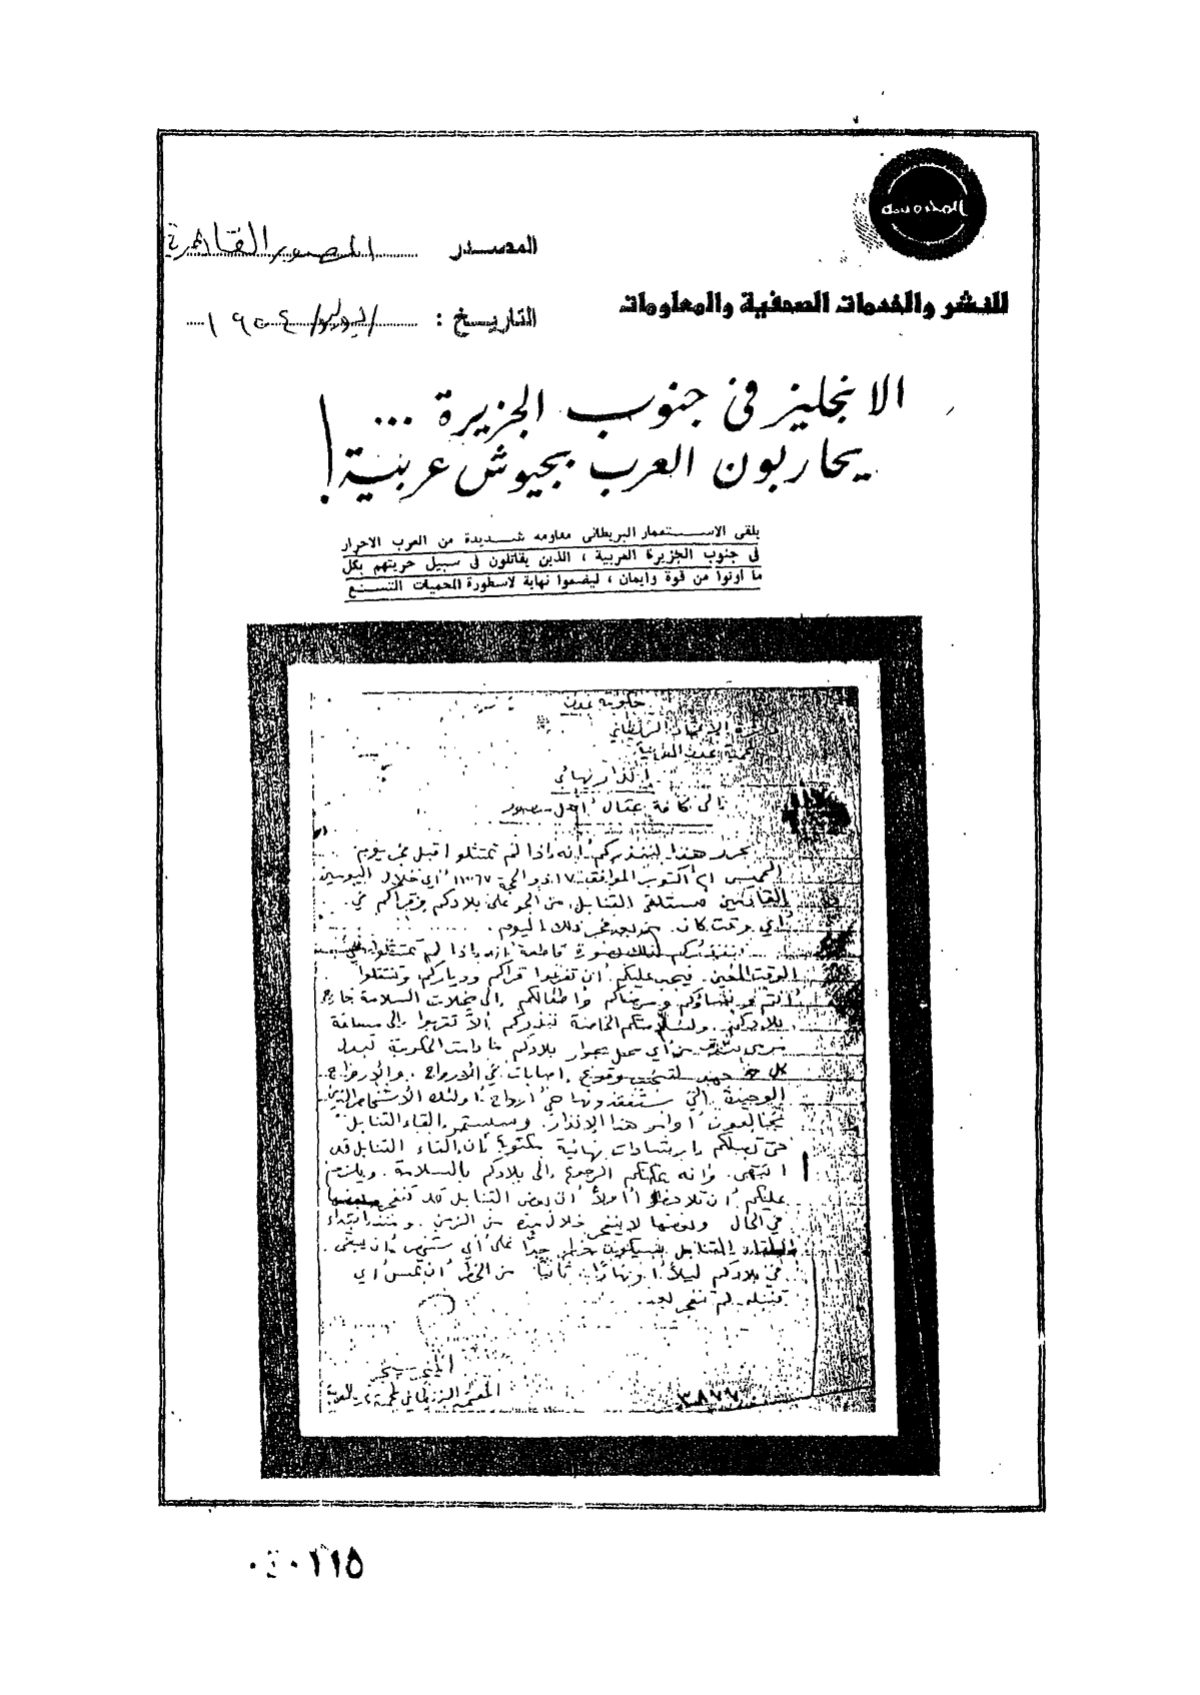 المصدر المصور القاهرية
للنشر والخدمات الصحفية والمعلومات
التاريخ : يوليو ١٩٥٤
الانجليز فى جنوب الجزيرة ...
يحاربون العرب بجيوش عربية !
يلقى الاستعمار البريطانى مقاومة شديدة من العرب الاحرار
فى جنوب الجزيرة العربية ، الذين يقاتلون فى سبيل حريتهم بكل
ما أوتوا من قوة وايمان ، ليضعوا نهاية لاسطورة المحميات التسع
حكومة عدن
انذار نهائي
الى كافة عقال أهل منصور
هذا لينذركم أنه إذا لم تمتثلوا قبل فجر يوم
الخميس ٢١ أكتوبر الموافق ١٧ ذو الحجة ١٣٦٧ أي خلال اليومين
القادمين ستلقى القنابل من الجو على بلادكم وقراكم في
أي وقت كان بعد فجر ذلك اليوم .
لذلك بصورة قاطعة أنه إذا لم تمتثلوا
الوقت المعين فيجب عليكم أن تفرغوا قراكم ودياركم وتنتقلوا
أنتم ونساؤكم ومرضاكم وأطفالكم إلى محلات السلامة خارج
بلادكم ولسلامتكم الخاصة ننذركم ألا تقربوا إلى مسافة
من أي محل بجوار بلادكم ما دامت الحكومة تبذل
كل جهد لتجنب وقوع إصابات في الأرواح . والأرواح
الوحيدة التي ستفقدونها هي أرواح أولئك الأشخاص الذين
أوامر هذا الإنذار . وسيستمر إلقاء القنابل
حتى تصلكم إرشادات نهائية مكتوبة بأن إلقاء القنابل قد
انتهى . وأنه يمكنكم الرجوع إلى بلادكم بالسلامة . ويلزم
عليكم أن تلاحظوا أولاً أن بعض القنابل قد تنفجر
في الحال وبعضها لا ينفجر خلال مدة من الزمن . ومنذ ابتداء
إلقاء القنابل فسيكون خطر جداً على أي شخص أن يبقى
في بلادكم ليلاً أو نهاراً . ثانياً من الخطر أن تمس أي
قنبلة لم تنفجر بعد .